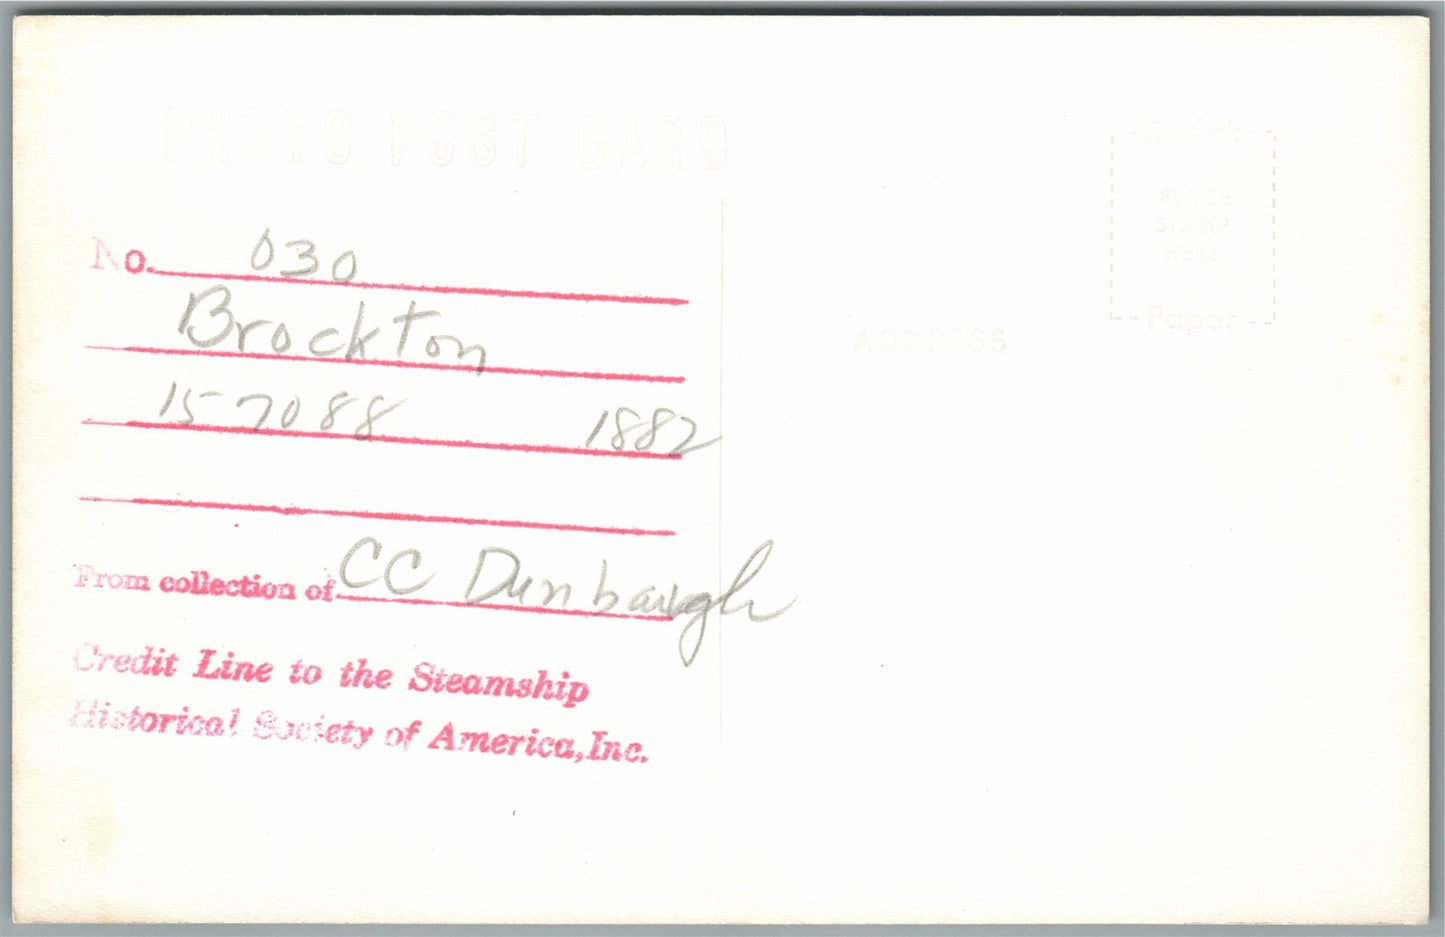 PHOTO POST CARD
No. 030
Brockton
157088 1882
From collection of CC Dunbaugh
Credit Line to the Steamship
Historical Society of America, Inc.
ADDRESS
Kodak
PLACE
STAMP
HERE
Paper